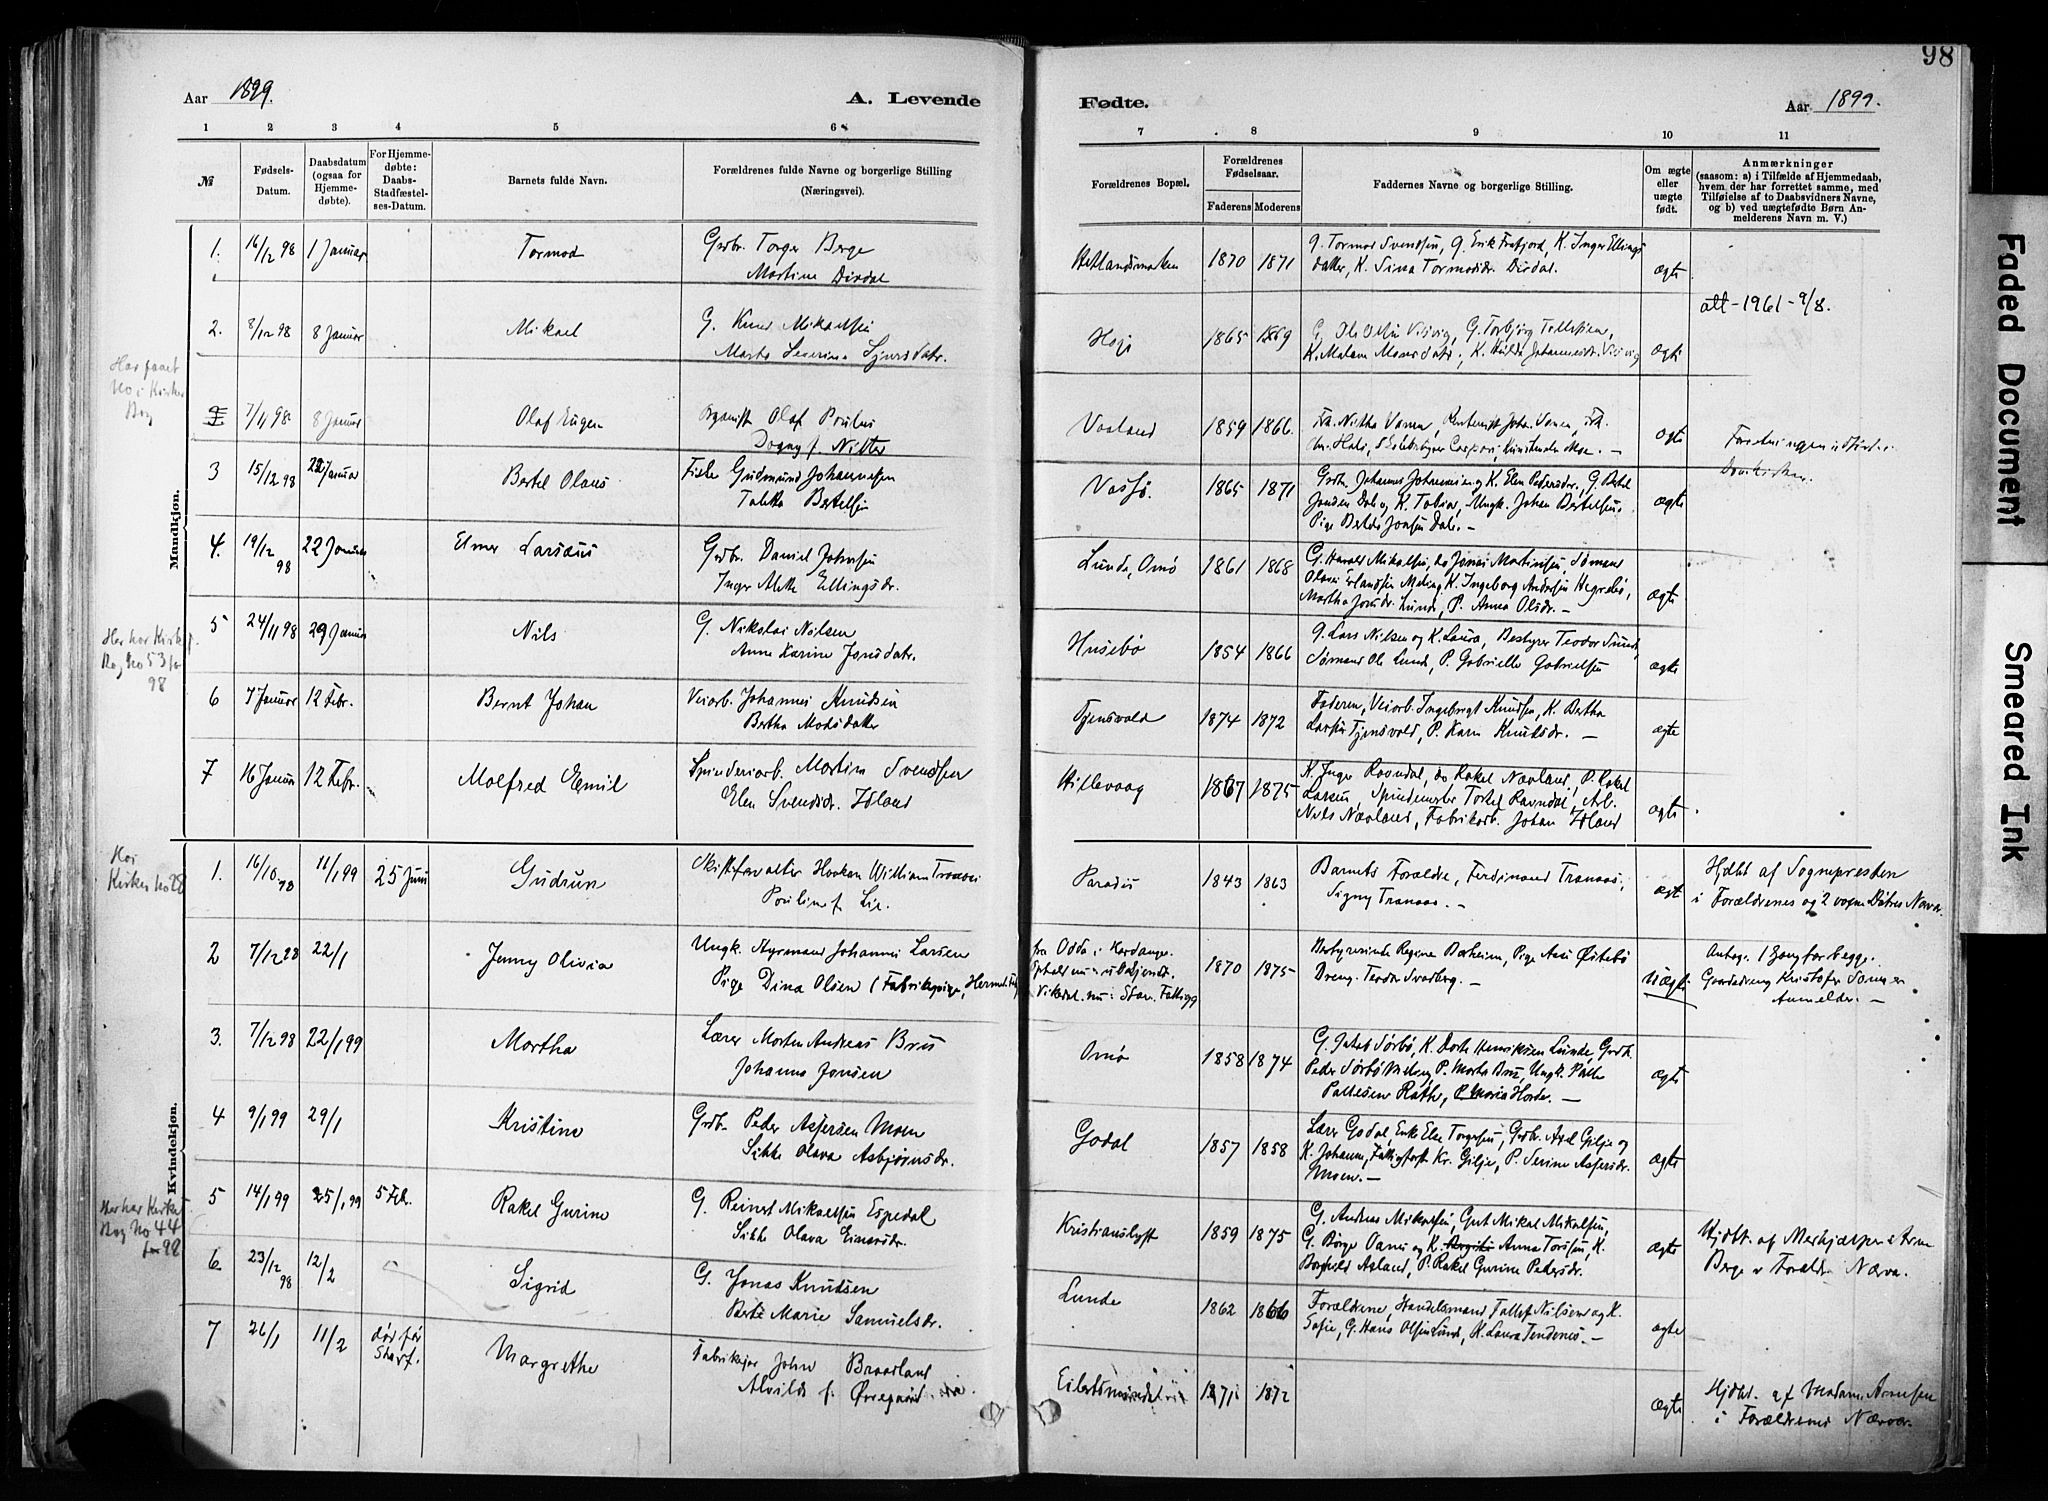 98
Aar 1899.
A. Levende Fødte.
Aar 1899.
1 2 3 4 5 6 7 8 9 10 11
№
Fødsels-Datum.
Daabsdatum (ogsaa for Hjemme-døbte).
For Hjemme-døbte: Daabs-Stadfæstel-ses-Datum.
Barnets fulde Navn.
Forældrenes fulde Navne og borgerlige Stilling (Næringsvei).
Forældrenes Bopæl.
Forældrenes Fødselsaar.
Faderens Moderens
Faddernes Navne og borgerlige Stilling.
Om ægte eller uægte født.
Anmærkninger
(saasom: a) i Tilfælde af Hjemmedaab,
hvem der har forrettet samme, med
Tilføielse af to Daabsvidners Navne,
og b) ved uægtefødte Børn An-
melderens Navn m. V.)
Mandkjøn.
1. 16/12 98 1 Januar Tormod Grdbr. Torger Berge
Martine Dirdal
Hetlandsmarken 1870 1871
G. Tormod Svendsen, G. Erik Frafjord, K. Inger Ellings
datter, K. Sina Tormodsdr. Dirdal.
ægte
2. 8/12 98 8 Januar Mikael G. Knud Mikaelsen
Marta Severina Sjursdatr.
1865 1869
G. Ole Olsen Visvig, G. Torbjørn Tollefsen,
K. Malene Monsdatr., K. Hulda Johannesdr. Visvig
ægte
alt - 1961 - 9/8.
Har faaet
No i Kirke
Bog
7/11 98 8 Januar Olaf Eugen Organist Olaf Paulus
Dagny f. Nitter
Vaaland 1859 1866.
ægte
3 15/12 98 22 Januar Bertel Olaus Fisker Gudmund Johannesen
Talette Bertelsen
Vassø. 1865 1871
Grdbr. Johannes Johannesen og K. Elen Pedersdr., G. Bertel
Jonsen Dale og K. Tobia, Ungk. Johan Bertelsen,
Pige Berthe Jonsen Dale. —
ægte
4. 19/12 98 22 Januar Elmer Larsæus Grdbr. Daniel Johnsen
Inger Mette Ellingsdr.
Lunde, Omø 1861 1868
G. Harald Mikalsen, do Jonas Martinsen, Sømand
Olaus Erlandsen Meling, K. Ingeborg Andersen Hegrebø,
Martha Jonsdr. Lunde, P. Anna Olsdr. —
ægte
5 24/11 98 29 Januar Nils G. Nikolai Nilsen
Anne Karine Jonsdatr.
Husebø 1854 1866
G. Lars Nilsen og K. Laura, Bestyrer Teodor Lunde,
Sømand Ole Lunde, P. Gabrielle Gabrielsen
ægte
Her har Kirke
Bog No 53 for
98
6 7 Januar 12 Febr. Bernt Johan Veiarb. Johannes Knudsen
Bertha Madsdatter
Tjensvold 1874 1872
Faderen, Veiarb. Ingebregt Knudsen, K. Bertha
Larsen Tjensvold, P. Karn Knudsdr. —
ægte
7 16 Januar 12 Febr. Malfred Emil Spinderiarb. Martin Svendsen
Elen Svendsdr. Idland
Hillevaag 1867 1875
K. Inger Ravndal, do Rakel Nævland, P. Rakel
Larsen, Spindemester Torkel Ravndal, Arb.
Nils Nævland, Fabrikarb. Johan Idland
ægte
Kvindekjøn.
Kirkes No 28
1. 16/10 98 11/1 99 25 Juni Gudrun Skiftsforvalter Haakon William Tranaas
Pauline f. Lie.
Paradis 1843 1863
Barnets Forældre, Ferdinand Tranaas,
Signy Tranaas. —
ægt
Hjdbt af Sognepresten
i Forældrenes og 2 voxne Døtres Nærv.
2 7/12 98 22/1 Jenny Olivia Ungk. Styrmand Johannes Larsen
Pige Dina Olsen (Fabrikspige, Hermet.fbr.
fra Odda i Hardanger
1870 1875
Bestyrerinde Regine Barheim, Pige Ane Østebø
Dreng Teodor Svadberg. —
Uægte
Antag. 1 Gang for begge.
Gaardsdreng Kristofer Sømmen
Anmelder. —
3. 7/12 98 22/1 99 Martha Lærer Morten Andreas Brus
Johanna Jonsen
Omø 1858 1874
G. Jakob Sørbø, K. Dorte Henriksen Lunde, Grdb.
Peder Sørbø Meling, P. Marta Brus, Ungk. Palle
Pallesen Rathe, P. Maria Horde. —
ægte
4 9/1 99 29/1 Kristine Grdb. Peder Aspersen Moen
Sikke Olava Asbjørnsdr.
Godal 1857 1858
Lærer Godal, Enke Elen Torgersen, Grdb. Axel Gilje og
K. Johanne, Fattigforst. Kr. Gilje, P. Serine Aspersdr.
Moen. —
ægte
5 14/1 99 25/1 99 5 Feb. Rakel Gurine G. Reinert Mikaelsen Espedal
Sikke Olava Einarsdr.
Kristianslyst 1859 1875
G. Andreas Mikalsen, Gut Mikal Mikalsen,
G. Børge Oanes og K. Anna Torssen, K.
Borghild Aaland, P. Rakel Gurine Pedersdr.
ægte
Hjdbt. af Merhjælper Arne
Berge v Forældr. Nærva.
Her har Kirke
Bog No 44
for 98
6 23/12 98 12/2 Sigrid G. Jonas Knudsen
Berte Marie Samuelsdr.
Lunde 1862 1866
Forældrene, Handelsmand Tallef Nilsen og K.
Sofie, G. Hans Olsen Lunde, K. Laura Tendenes. —
ægte
7 26/1 11/2 død før Stadf. Margrethe Fabrikeier John Braadland
Alvilde f. Øvregaard
1871 1872
ægte
Hjdbt. af Madam Arnesen
i Forældrenes Nærvær.
Faded Document
Smeared Ink